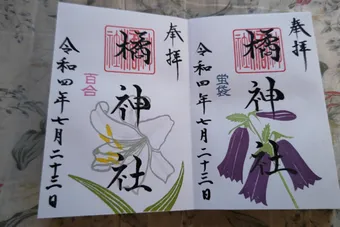 奉拝
橘神社
蛍袋
令和四年七月二十三日
奉拝
橘神社
百合
令和四年七月二十三日